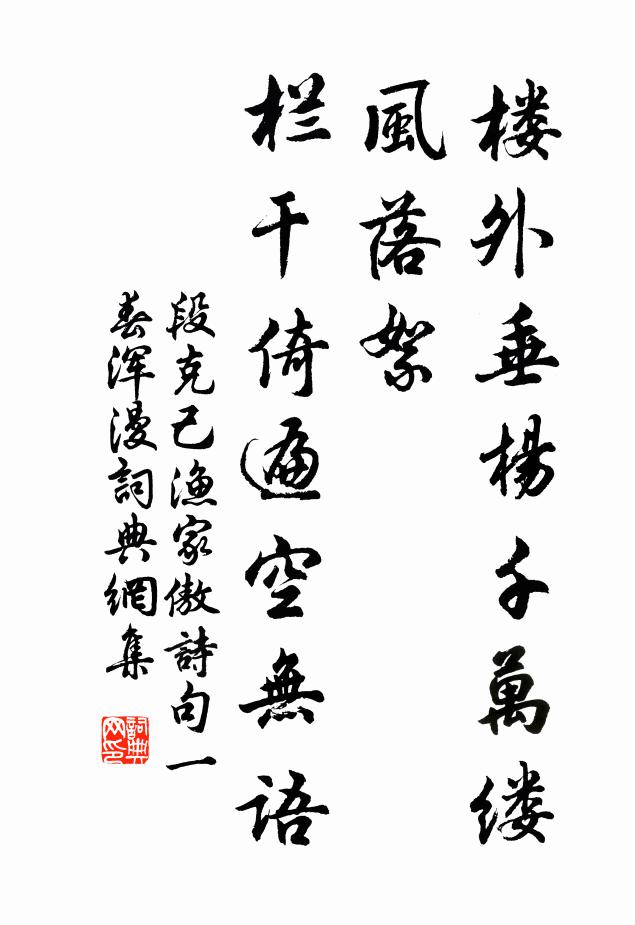 楼外垂楊千萬缕
風落絮
栏干倚遍空無语
段克己漁家傲詩句一
春浑漫詞典網集
詞典网印